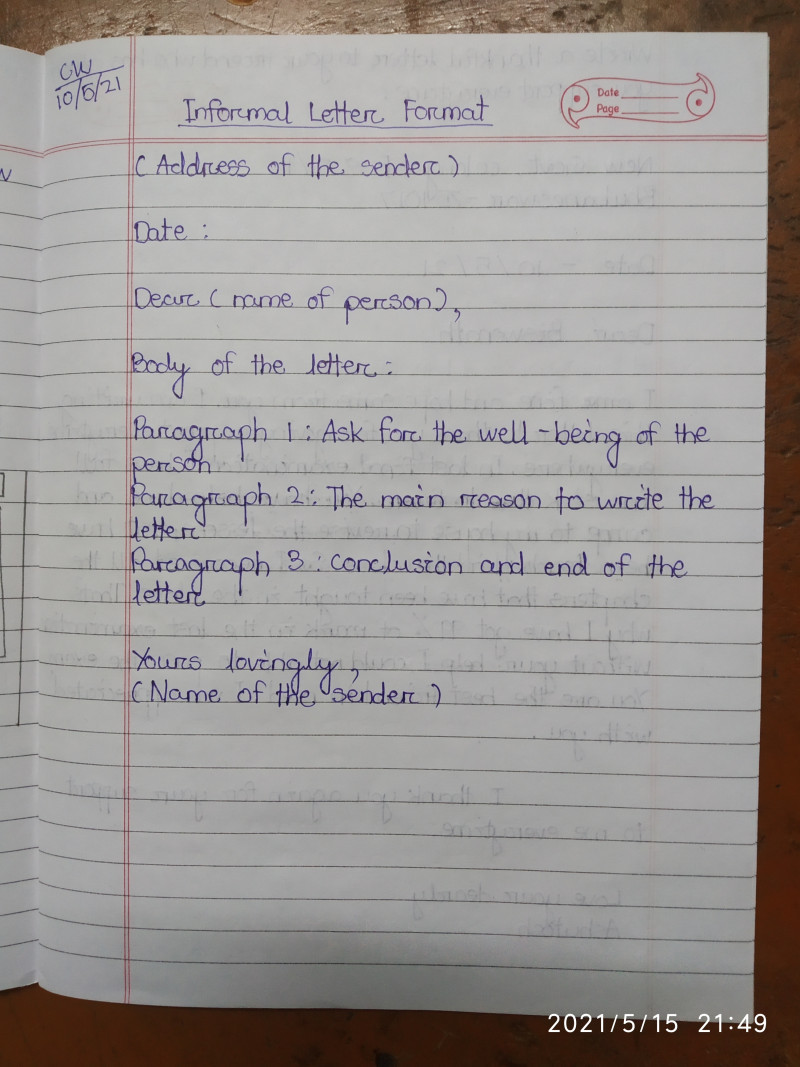 CW
10/5/21
Informal Letter Format
Date
Page
(Address of the sender)
Date :
Dear (name of person),
Body of the letter:
Paragraph 1 : Ask for the well-being of the
person
Paragraph 2: The main reason to write the
letter
Paragraph 3 : conclusion and end of the
letter
Yours lovingly,
(Name of the sender)
2021/5/15 21:49